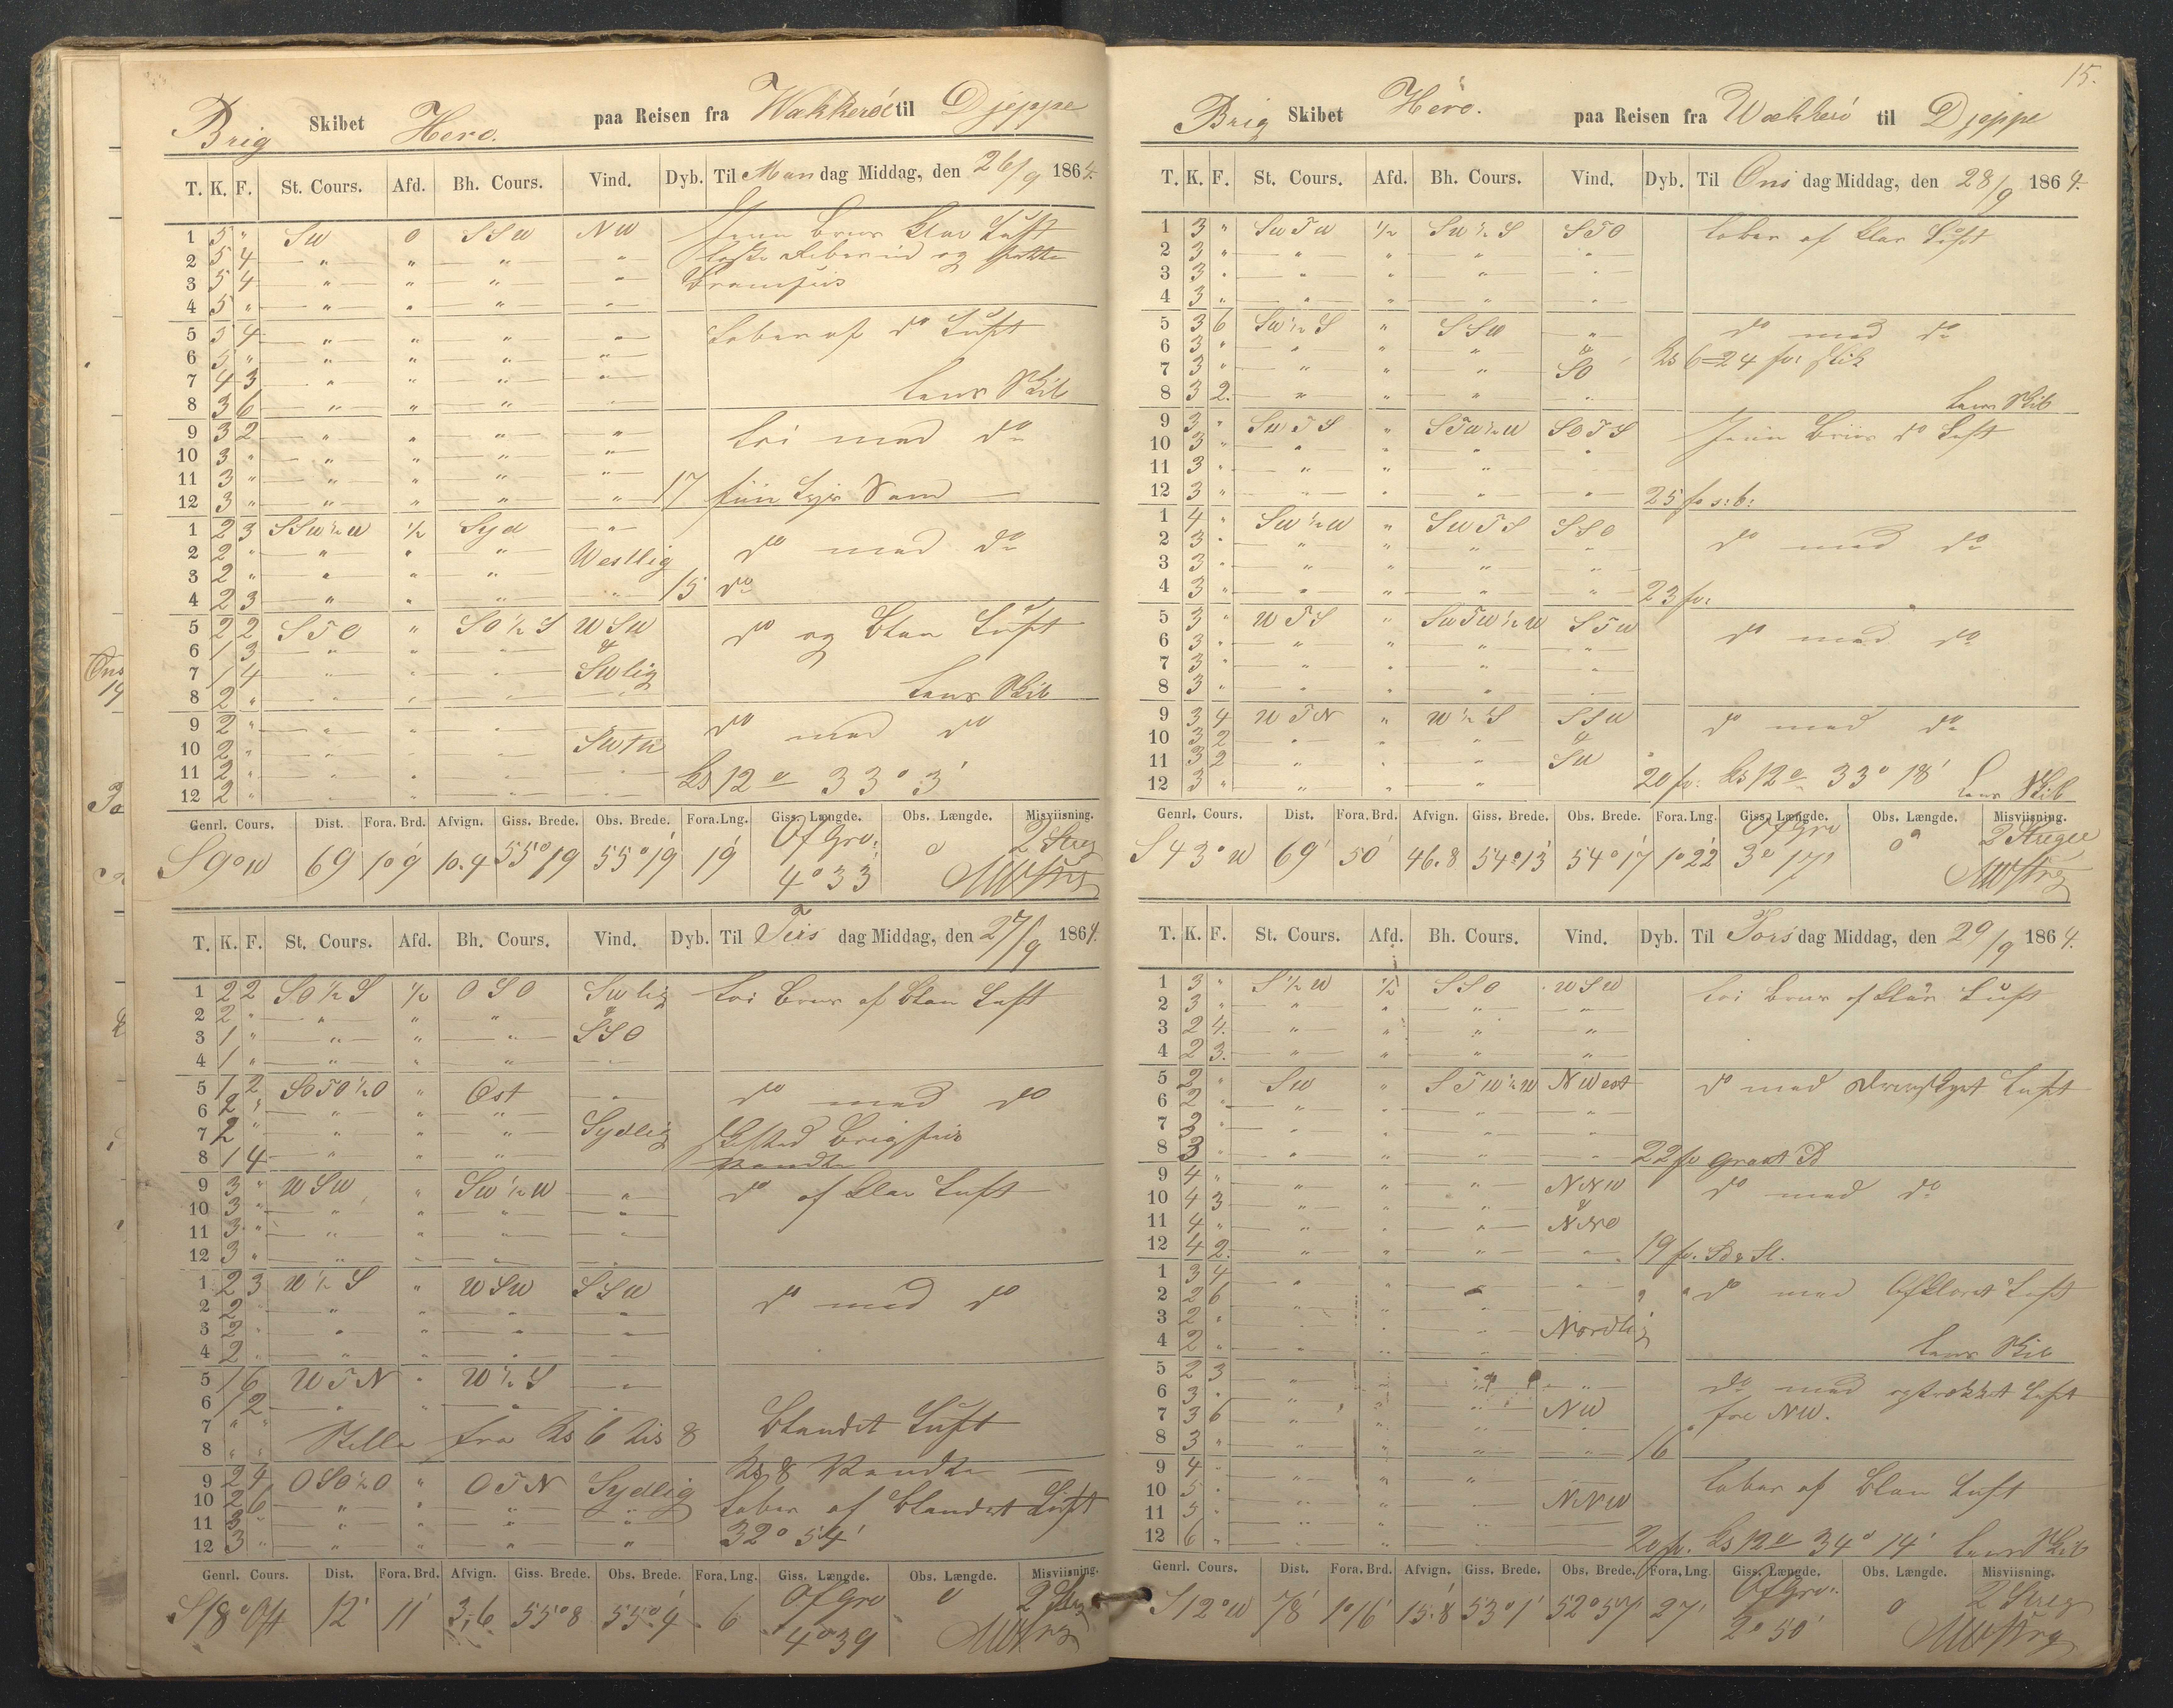 Brig Skibet Hero. paa Reisen fra Wækkerö til Djeppe
T. K. F. St. Cours. Afd. Bh. Cours. Vind. Dyb. Til Mandag Middag, den 26/9 1864.
1 5 " SW 0 SSW NW Jevn Briis Klar Luft
2 5 4 " " " "
3 5 4 " " " "
4 5 " " " " "
5 5 4 " " " " Laber af do Luft
6 5 " " " " "
7 4 3 " " " "
8 3 6 " " " " Lens Skib
9 3 2 " " " " med do
10 3 " " " " "
11 3 " " " " "
12 3 " " " " " 17 fiin Lys Sand
1 2 3 SSW½W ½ Syd "
2 2 " " " " Westlig do med do
3 2 " " " "
4 2 3 " " " " 15 do
5 2 2 STO " SO½S WSW do og Blan Luft
6 1 3 " " " &
7 1 4 " " " SWlig
8 2 " " " " " Lens Skib
9 2 " " " " do med do
10 2 " " " "
11 2 " " " " " Ks 12 33° 3'
12 2 " " " "
Genrl. Cours. Dist. Fora. Brd. Afvign. Giss. Brede. Obs. Brede. Fora. Lng. Giss. Længde. Obs. Længde. Misviisning.
S9°W 69 1°9 10.4 55°19 55°19 19 Of Gro. 4°33' 0 2 Streg
T. K. F. St. Cours. Afd. Bh. Cours. Vind. Dyb. Til Tiisdag Middag, den 27/9 1864.
1 2 2 SO½S ½ OSO SWlig Briis af Blan Luft
2 2 " " " " &
3 1 " " " " SSO
4 1 " " " " "
5 1 2 SOTO½O " Øst " do med do
6 2 " " " "
7 2 " " " " Sydlig
8 1 4 " " " Vendte
9 3 " WSW " SW½W " do af Klar Luft
10 3 " " " " "
11 3 " " " " "
12 3 " " " " "
1 2 3 W½S " WSW SSW
2 2 " " " " " do med do
3 2 " " " " "
4 2 " " " " "
5 1 6 WTN " W½S "
6 1 2 " " " "
7 " " Stille fra Ks 6 til 8 Blandet Luft
8 " "
9 2 4 OSO½O " OTN Sydlig Ks 8 Vendte
10 2 6 " " " " Laber af Blandet Luft
11 3 " " " " " 32° 54'
12 3 " " " " "
Genrl. Cours. Dist. Fora. Brd. Afvign. Giss. Brede. Obs. Brede. Fora. Lng. Giss. Længde. Obs. Længde. Misviisning.
S18°Ost 12' 11' 3.6 55°8 55°4 6 Of Gro 4°39 0 2 Streg
15.
Brig Skibet Hero. paa Reisen fra Wækkerö til Djeppe
T. K. F. St. Cours. Afd. Bh. Cours. Vind. Dyb. Til Onsdag Middag, den 28/9 1864.
1 3 " SWTW ½ SW½S STO Laber af Klar Luft
2 3 " " " " "
3 3 " " " " "
4 3 " " " " "
5 3 6 SW½S " SSW " do med do
6 3 " " " " & Ks 6 = 24 fv: Slik
7 3 " " " " SO
8 3 2 " " " " Lens Skib
9 3 " SWTS " STW½W SOTS Jevn Briis do Luft
10 3 " " " " "
11 3 " " " "
12 3 " " " " " 25 fv s:b:
1 4 " SW½W " SWTS SSO
2 3 " " " " " do med do
3 3 " " " " "
4 3 " " " " " 23 fv:
5 3 " WTS " SWTW½W STW do med do
6 3 " " " " "
7 3 " " " " "
8 3 " " " " "
9 3 4 WTN " W½S SSW do med do
10 3 2 " " " &
11 3 2 " " " SW
12 3 " " " " 20 fv: Ks 12 33° 18' Lens Skib
Genrl. Cours. Dist. Fora. Brd. Afvign. Giss. Brede. Obs. Brede. Fora. Lng. Giss. Længde. Obs. Længde. Misviisning.
S43°W 69' 50' 46.8 54°13' 54°17 1°22 Of Gro 3°17' 0 2 Streger
T. K. F. St. Cours. Afd. Bh. Cours. Vind. Dyb. Til Torsdag Middag, den 29/9 1864.
1 3 " S½W ½ SSO WSW Briis af Klar Luft
2 3 " " " " "
3 2 4 " " " "
4 2 3 " " " "
5 2 " SW " STW½W NWest do med Luft
6 2 " " " " "
7 3 " " " " "
8 3 " " " " " 22 fv
9 4 " " " " NNW do med do
10 4 3 " " " &
11 4 " " " " NNO
12 4 2 " " " " 19 fv.
1 3 4 " " " " do med Luft
2 2 6 " " "
3 2 " " " " Nordlig
4 2 " " " " Lens Skib
5 2 3 " " " " do med Luft
6 3 " " " " fra NW.
7 3 6 " " " NW
8 3 " " " " " 16
9 4 " " " " Laber af Blan Luft
10 5 " " " " NNW
11 5 " " " "
12 6 " " " " 20 fv. Ks 12 34° 14' Lens Skib
Genrl. Cours. Dist. Fora. Brd. Afvign. Giss. Brede. Obs. Brede. Fora, Lng. Giss. Længde. Obs. Længde. Misviisning.
S12°W 78' 1°16' 15.8 53°1' 52°57' 27' Of Gro. 2°50' 0 2 Streg